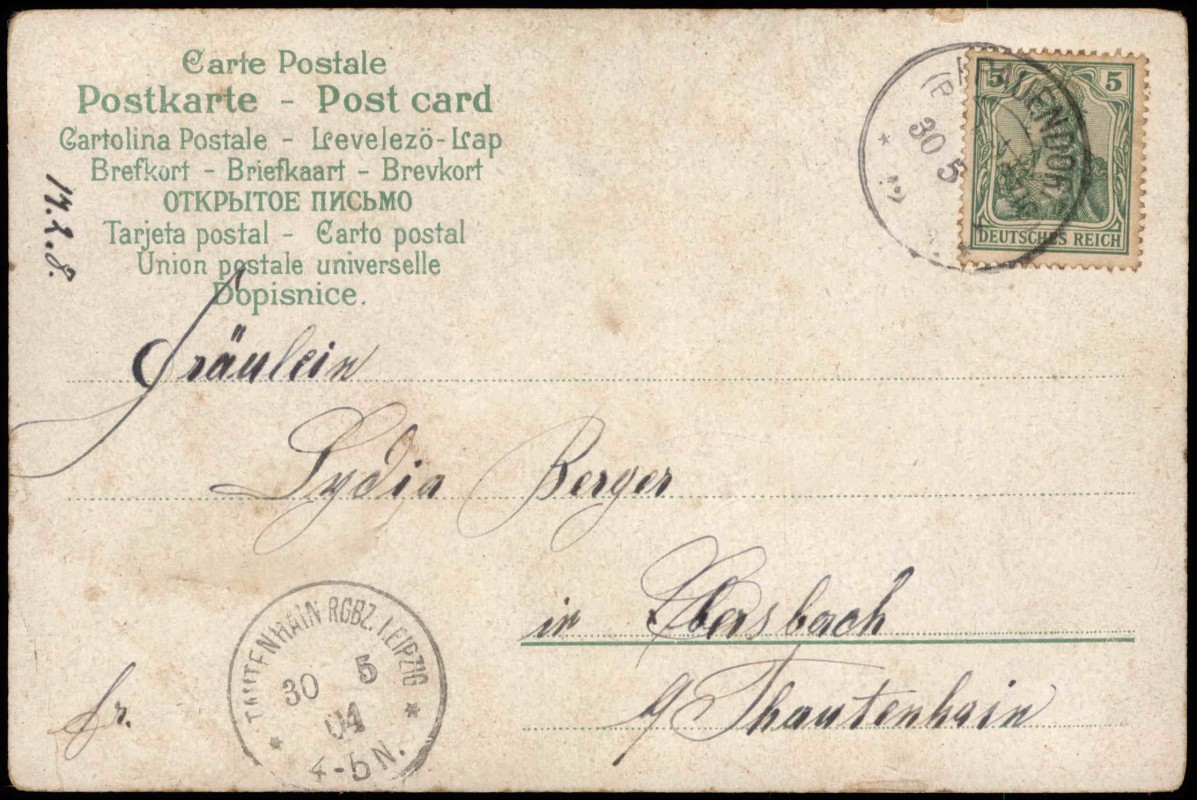 Carte Postale
Postkarte - Post card
Cartolina Postale - Levelező-Lap
Brefkort - Briefkaart - Brevkort
ОТКРЫТОЕ ПИСЬМО
Tarjeta postal - Carto postal
Union postale universelle
Dopisnice.
5 5
DEUTSCHES REICH
30 5
Fräulein
Lydia Berger
in Ebersbach
Thautenhain
fr.
TAUTENHAIN RGBZ. LEIPZIG
30 5
04
4-5 N.